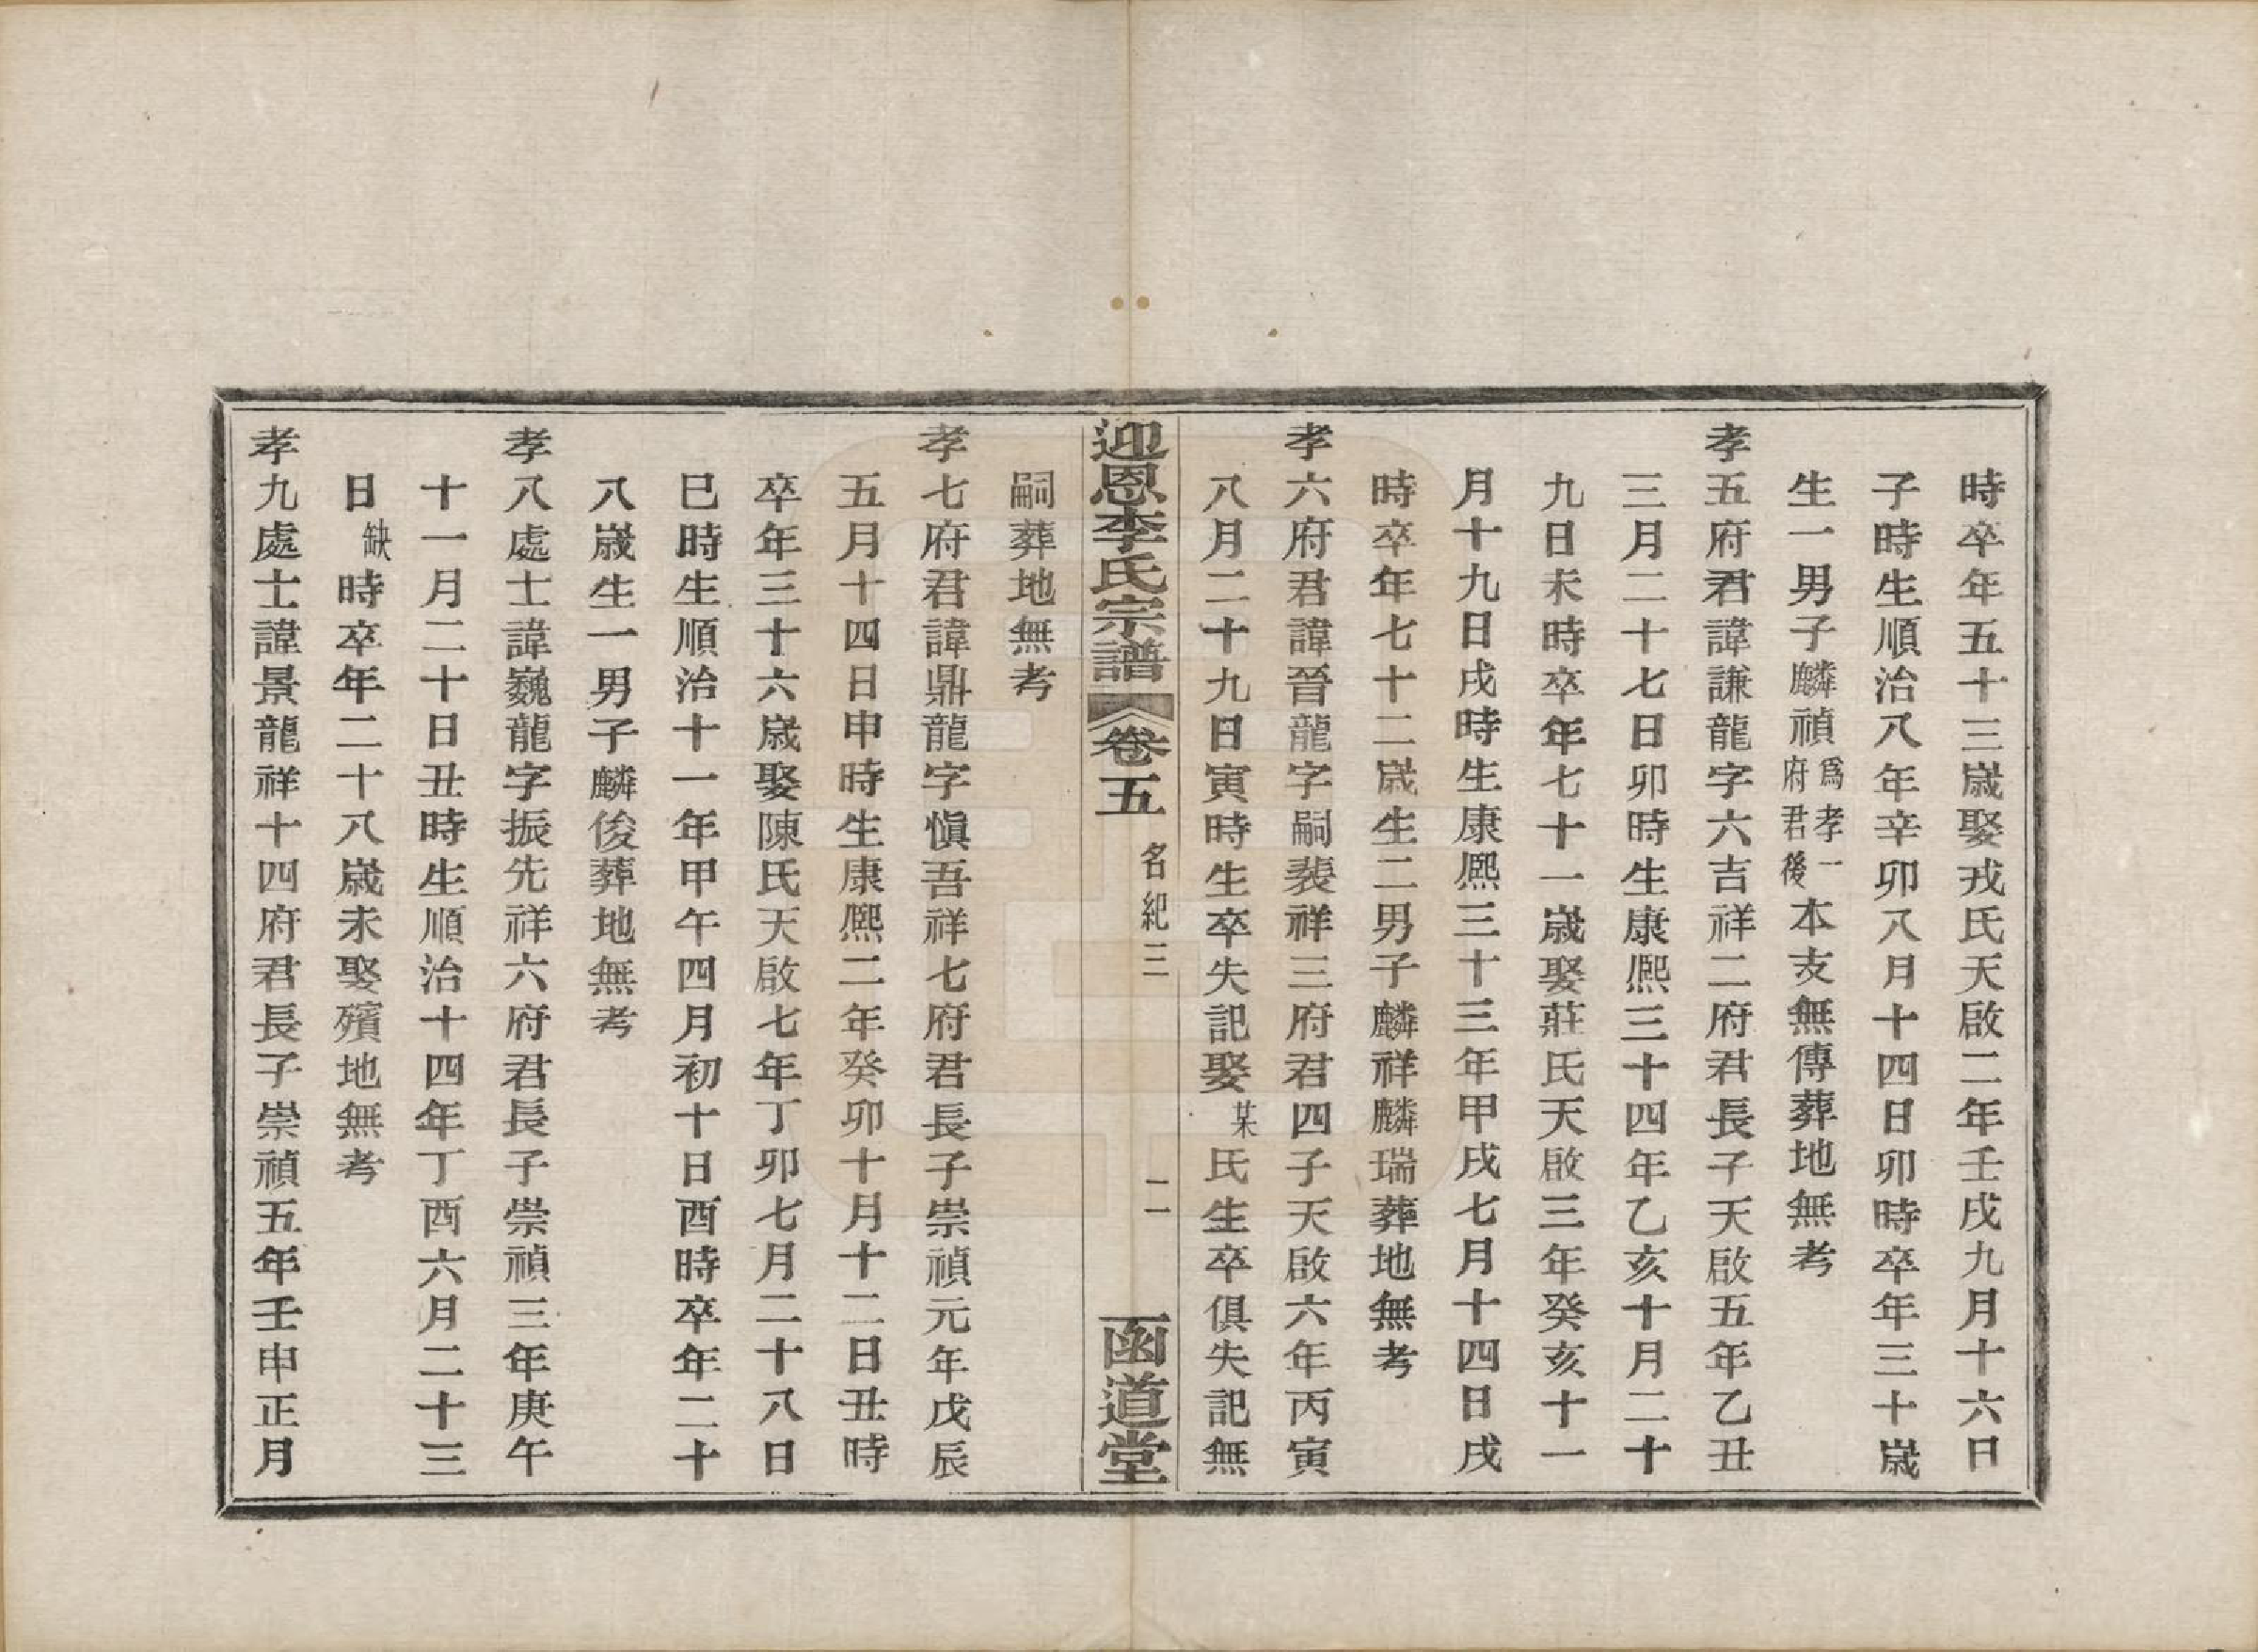 時卒年五十三歲娶戎氏天啟二年壬戌九月十六日
子時生順治八年辛卯八月十四日卯時卒年三十歲
生一男子麟禎爲孝一府君後本支無傳葬地無考
孝五府君諱謙龍字六吉祥二府君長子天啟五年乙丑
三月二十七日卯時生康熙三十四年乙亥十月二十
九日未時卒年七十一歲娶莊氏天啟三年癸亥十一
月十九日戌時生康熙三十三年甲戌七月十四日戌
時卒年七十二歲生二男子麟祥麟瑞葬地無考
孝六府君諱晉龍字嗣裴祥三府君四子天啟六年丙寅
八月二十九日寅時生卒失記娶某氏生卒俱失記無
迎恩李氏宗譜 卷五 名紀三 二 函道堂
嗣葬地無考
孝七府君諱鼎龍字愼吾祥七府君長子崇禎元年戊辰
五月十四日申時生康熙二年癸卯十月十二日丑時
卒年三十六歲娶陳氏天啟七年丁卯七月二十八日
巳時生順治十一年甲午四月初十日酉時卒年二十
八歲生一男子麟俊葬地無考
孝八處士諱巍龍字振先祥六府君長子崇禎三年庚午
十一月二十日丑時生順治十四年丁酉六月二十三
日缺時卒年二十八歲未娶殯地無考
孝九處士諱景龍祥十四府君長子崇禎五年壬申正月